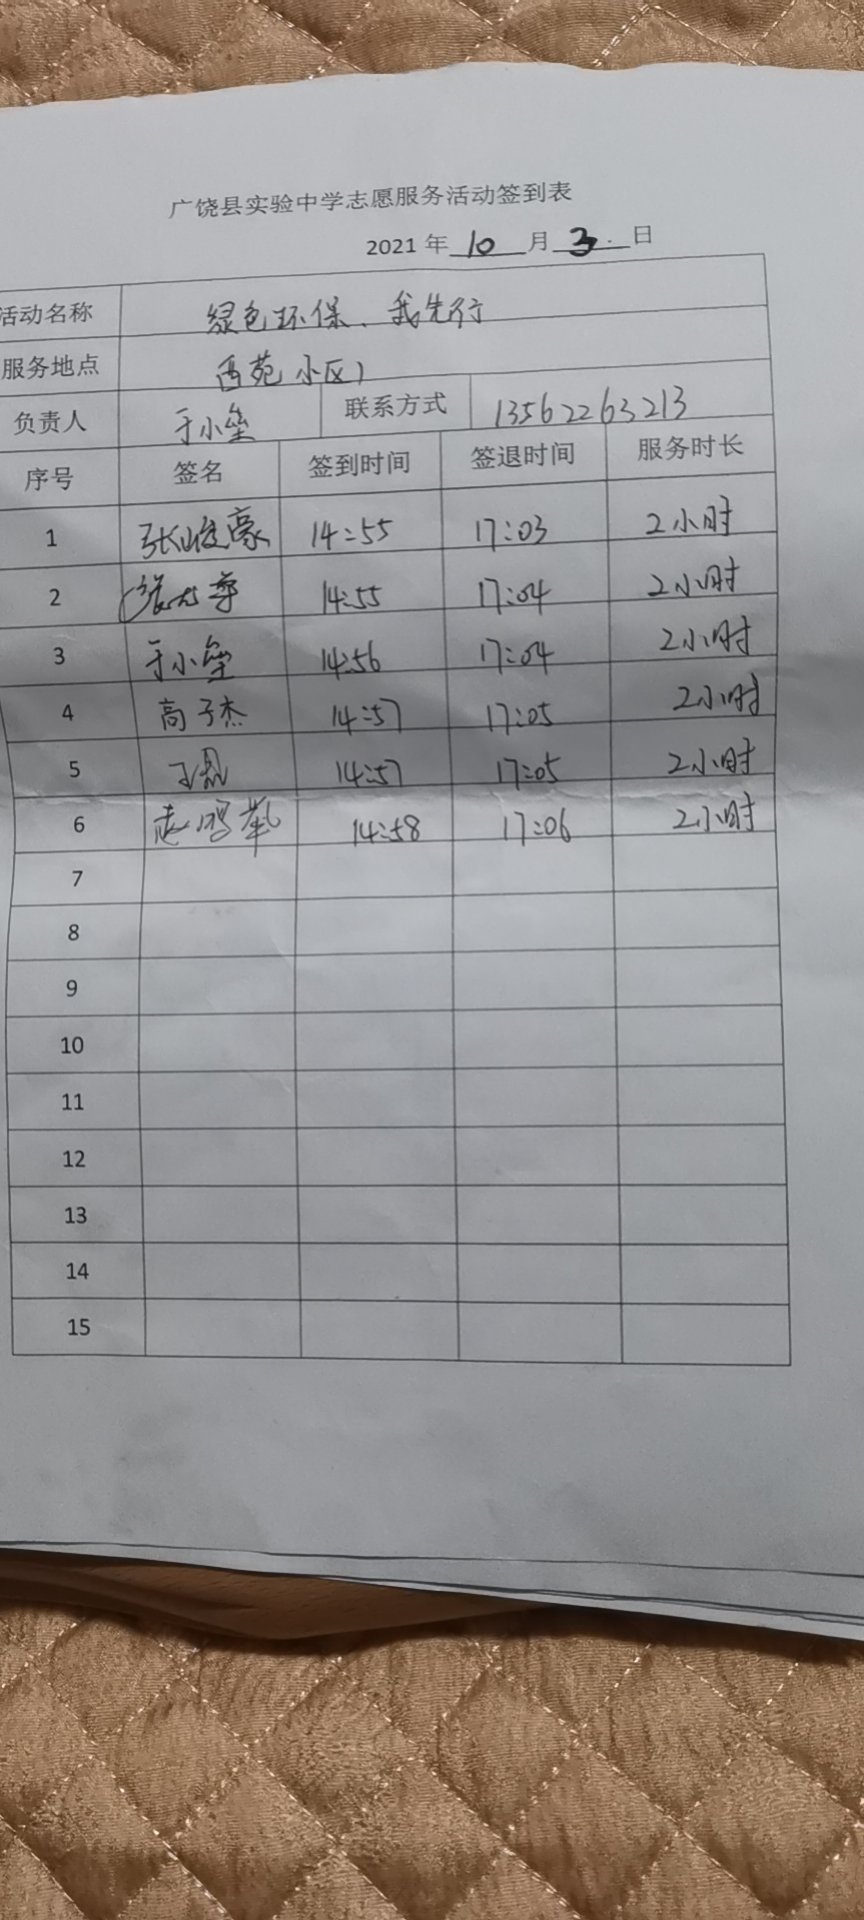 广饶县实验中学志愿服务活动签到表
2021 年 10 月 3 日
活动名称 绿色环保、我先行
服务地点 西苑小区
负责人 于小垒 联系方式 13562263213
序号 签名 签到时间 签退时间 服务时长
1 张峻豪 14:55 17:03 2小时
2 张 14:55 17:04 2小时
3 于小垒 14:56 17:04 2小时
4 高子杰 14:57 17:05 2小时
5 14:57 17:05 2小时
6 赵鸿 14:58 17:06 2小时
7
8
9
10
11
12
13
14
15